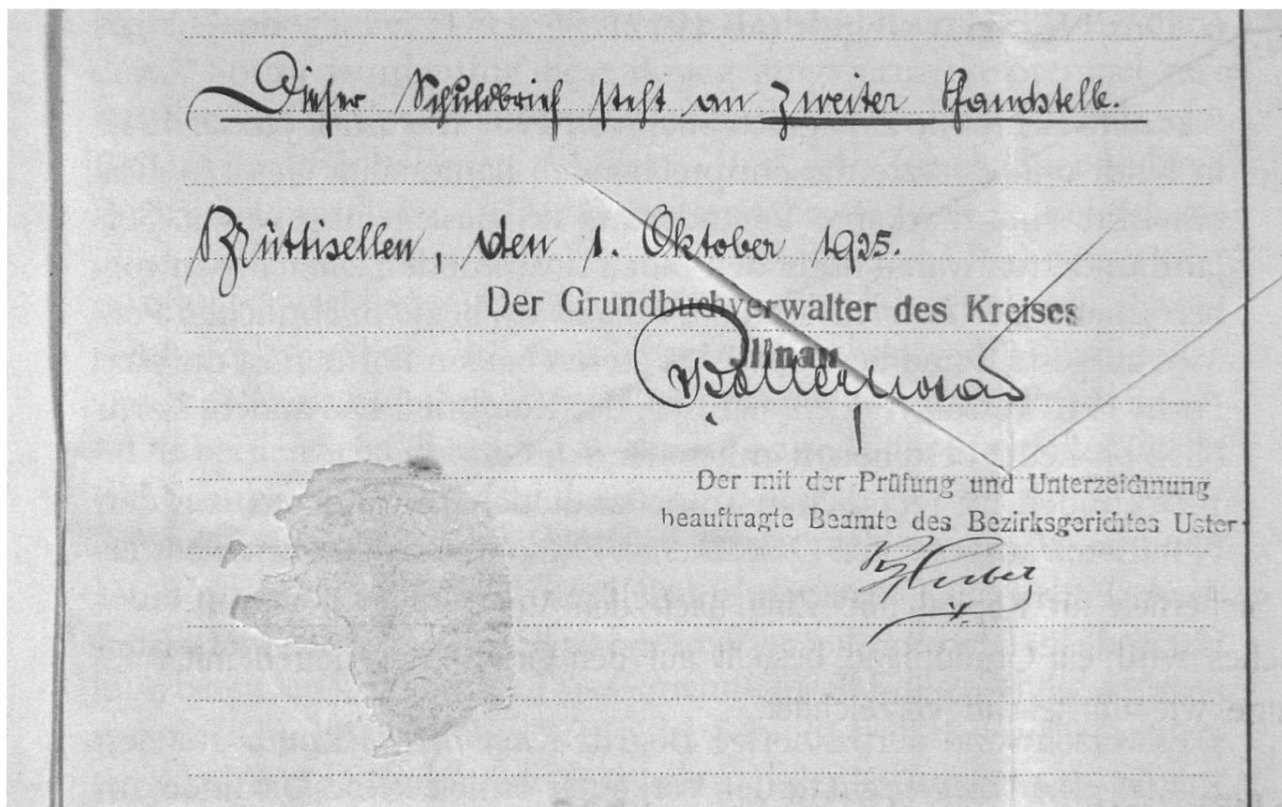 Dieser Schuldbrief steht an zweiter Pfandstelle.
Brüttisellen, den 1. Oktober 1925.
Der Grundbuchverwalter des Kreises
Illnau
Der mit der Prüfung und Unterzeichnung
beauftragte Beamte des Bezirksgerichtes Uster